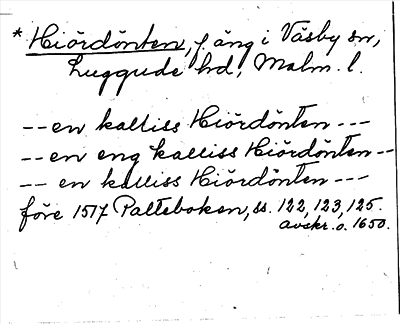 * Hiördönten, f. äng i Väsby sn,
Luggude hd, Malm. l.
-- en kalliss Hiördönten ---
-- en eng kalliss Hiördönten --
-- en kalliss Hiördönten ---
före 1517 Palteboken, ss. 122, 123, 125.
avskr. o. 1650.